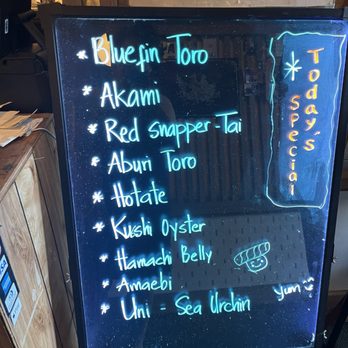 * Bluefin Toro
* Akami
* Red snapper-Tai
* Aburi Toro
* Hotate
* Kushi Oyster
* Hamachi Belly
* Amaebi
* Uni - Sea Urchin
* Today's Special
Yum